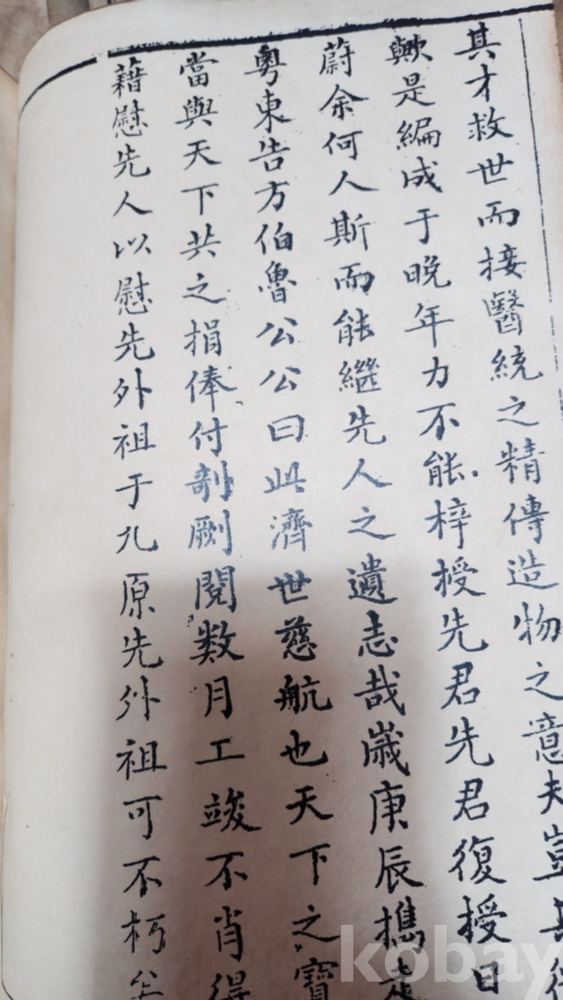 其才救世而接醫統之精傳造物之意夫豈
歟是編成于晚年力不能梓授先君先君復授日
蔚余何人斯而能繼先人之遺志哉嵗庚辰携走
粵東告方伯魯公公曰此濟世慈航也天下之寶
當與天下共之捐俸付剞劂閱数月工竣不肖得
藉慰先人以慰先外祖于九原先外祖可不朽矣
kobay